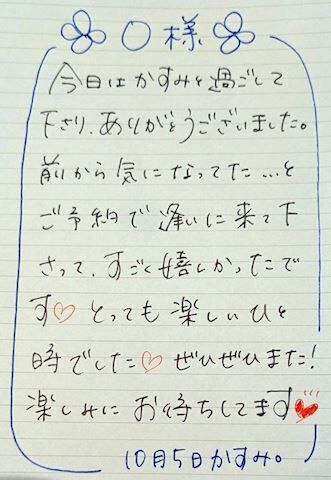 〇様
今日はかすみと過ごして
下さり、ありがとうございました。
前から気になってた…と
ご予約で逢いに来て下
さって、すごく嬉しかったで
す♡とっても楽しいひと
時でした♡ぜひぜひまた!
楽しみにお待ちしてます♥
10月5日かすみ。